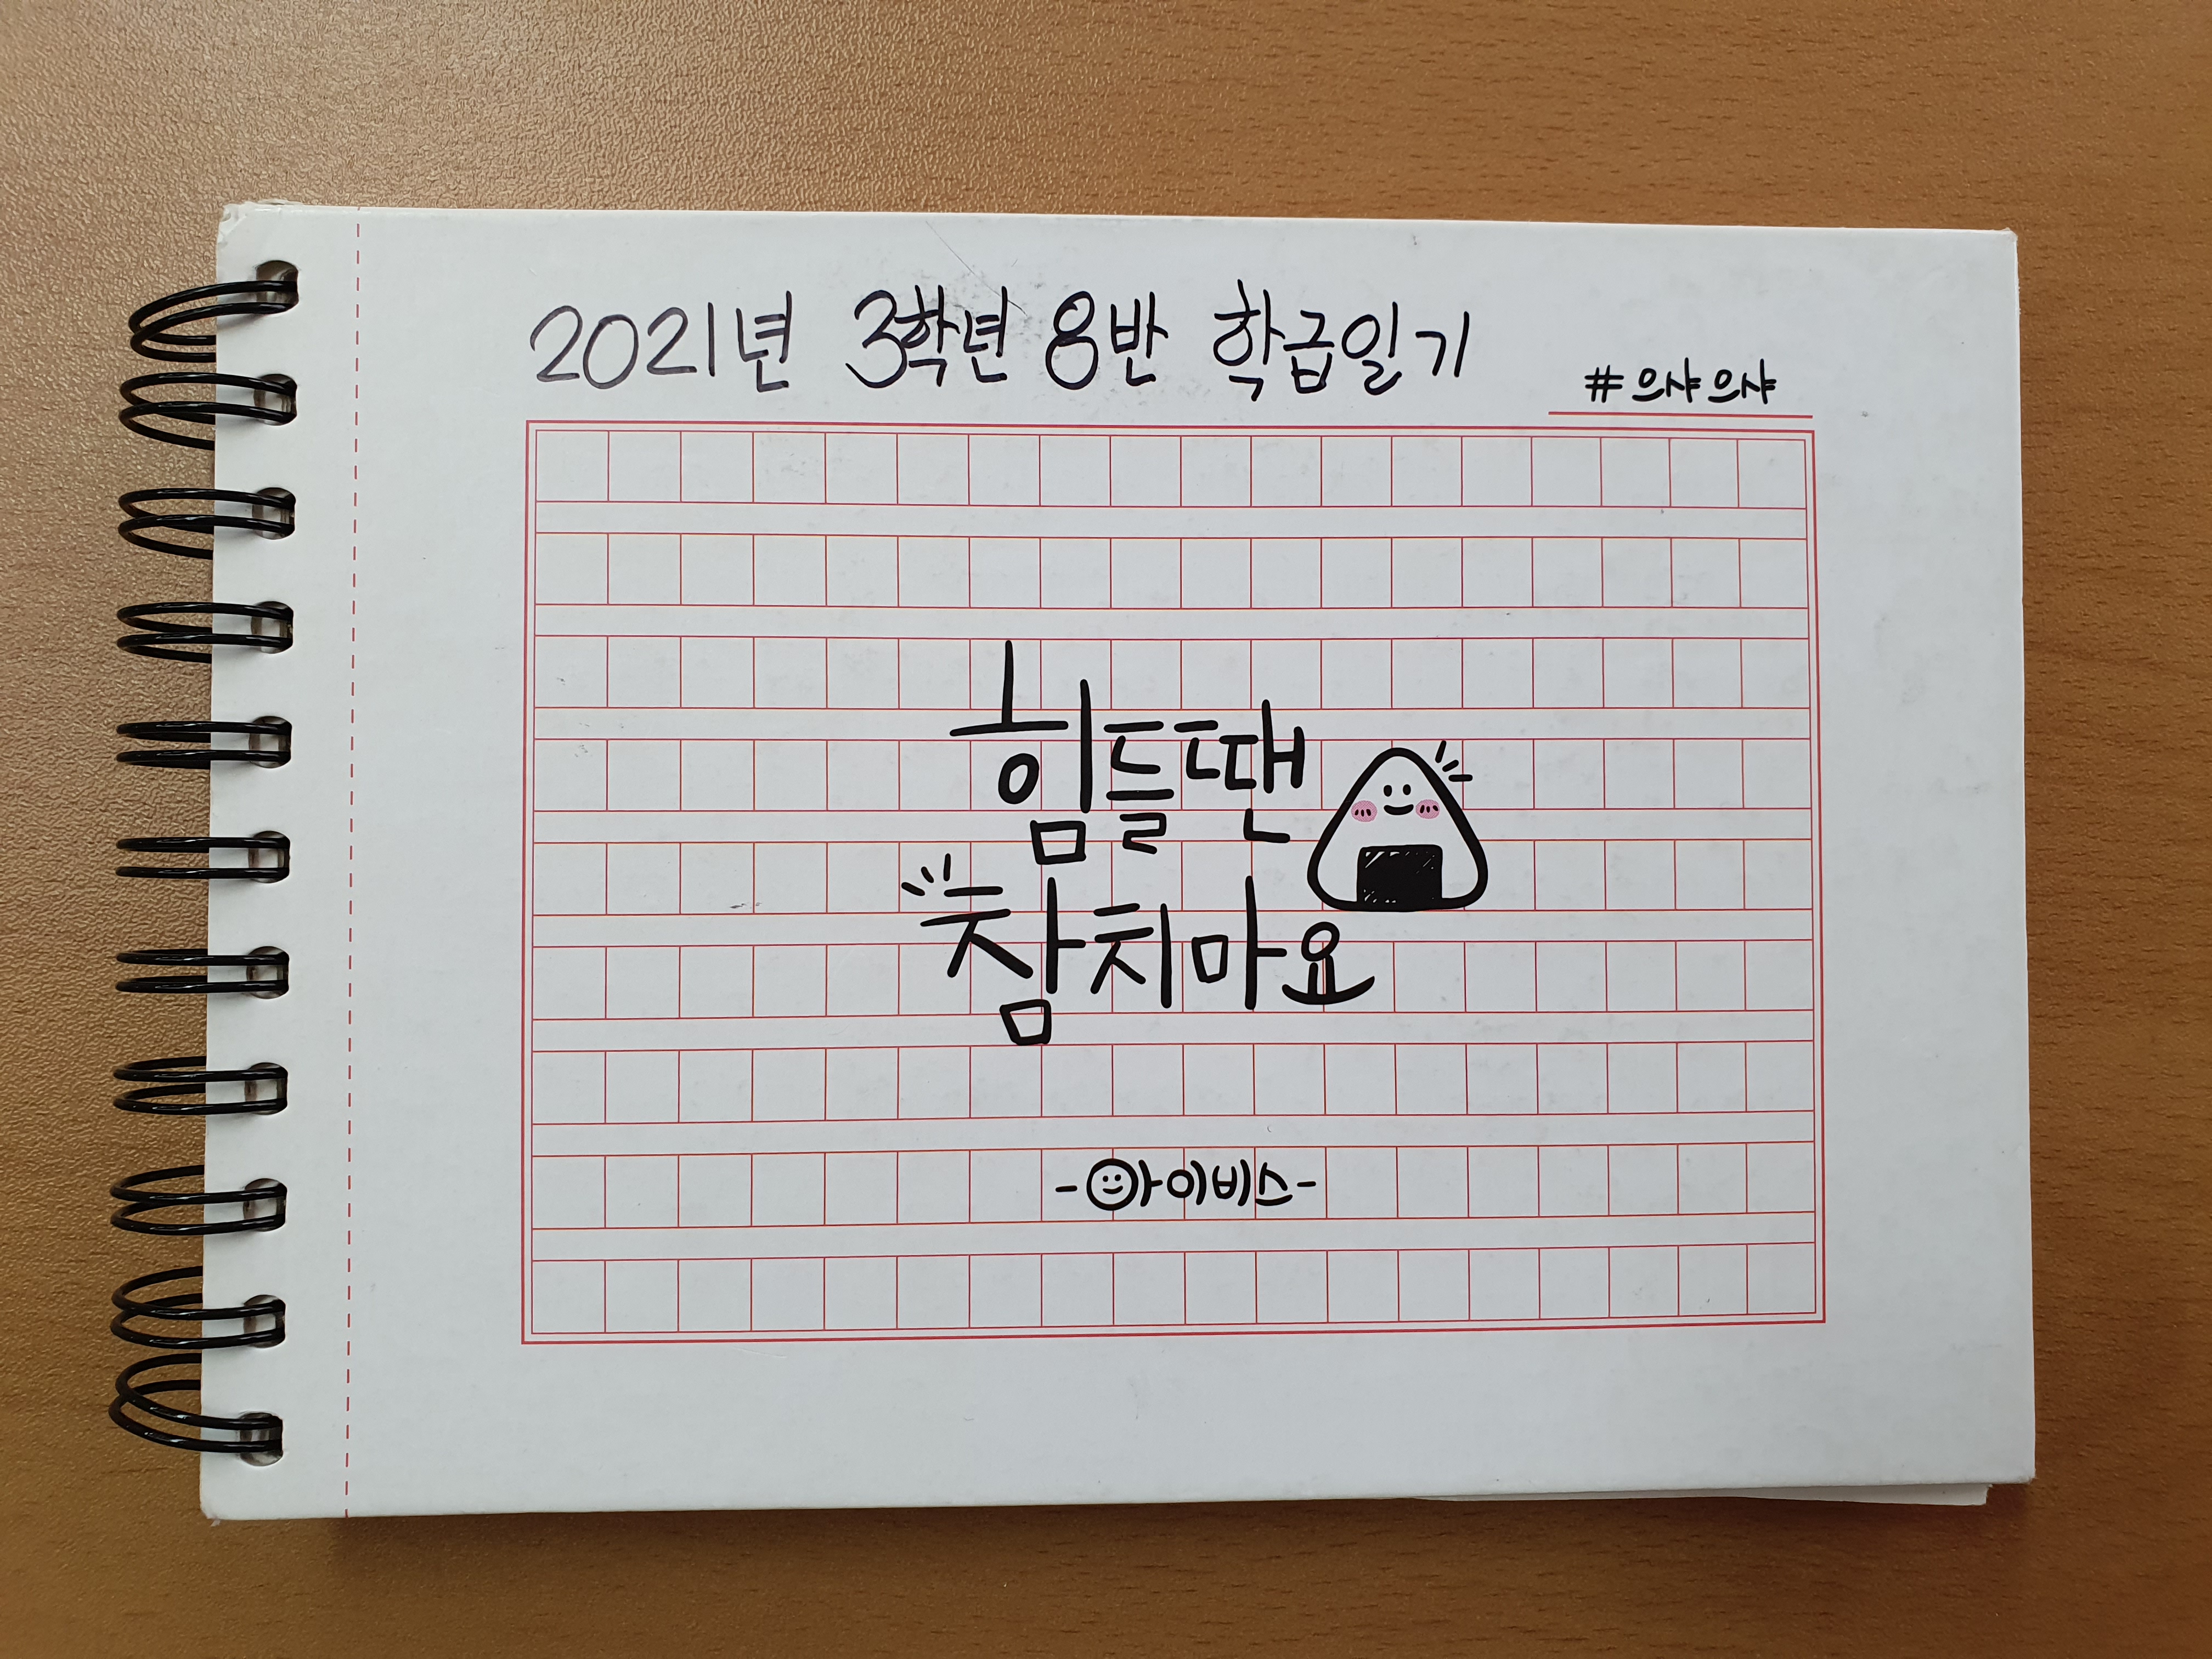 2021년 3학년 8반 학급일기
#으샤으샤
힘들땐
참치마요
-아이비스-